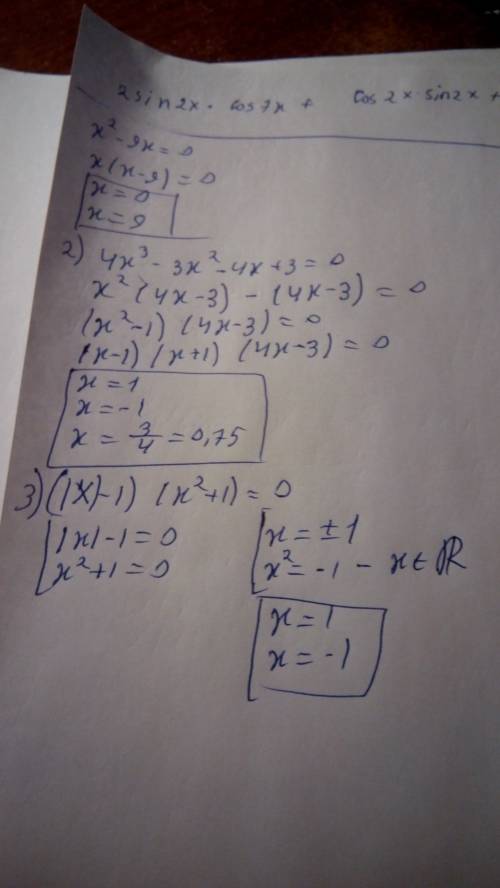 2 sin 2x · cos 7x + cos 2x · sin 2x +
x² - 9x = 0
x(x - 9) = 0
x = 0
x = 9
2) 4x³ - 3x² - 4x + 3 = 0
x² (4x - 3) - (4x - 3) = 0
(x² - 1) (4x - 3) = 0
(x - 1) (x + 1) (4x - 3) = 0
x = 1
x = -1
x = 3/4 = 0,75
3) (|x| - 1) (x² + 1) = 0
|x| - 1 = 0
x² + 1 = 0
x = ± 1
x² = -1 - x ∈ ℝ
x = 1
x = -1